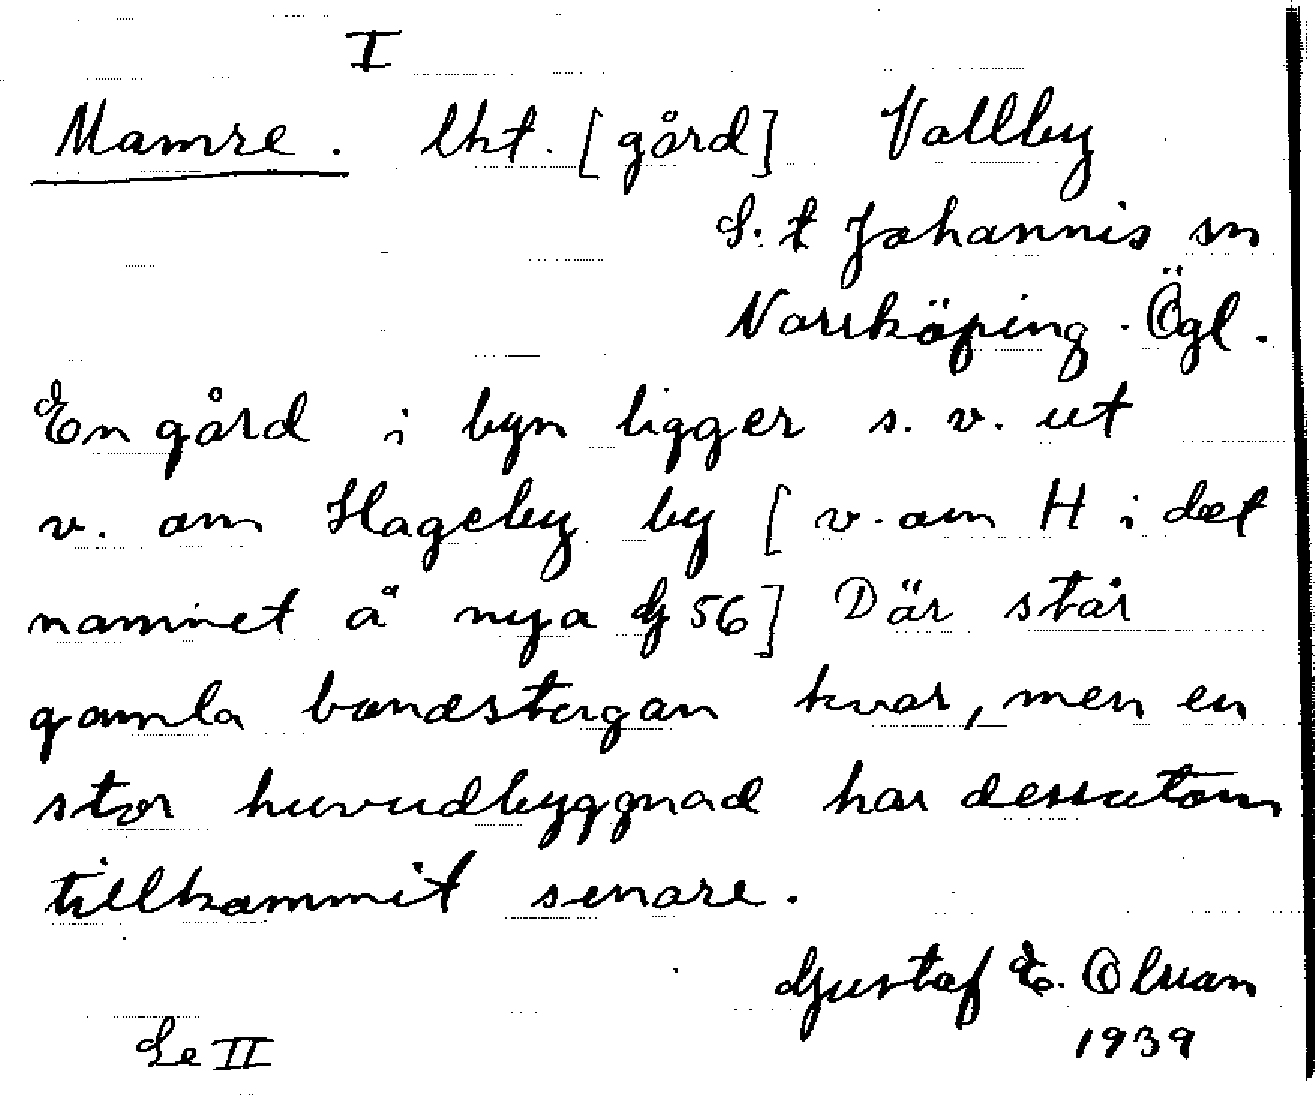 I
Mamre. lht. [gård] Vallby
S:t Johannis sn
Norrköping. Ögl.
En gård i byn ligger s. v. ut
v. om Hageby by [v. om H i det
namnet å nya G 56] Där står
gamla bondstugan kvar, men en
stor huvudbyggnad har dessutom
tillkommit senare.
Gustaf E. Olsson
1939
Se II